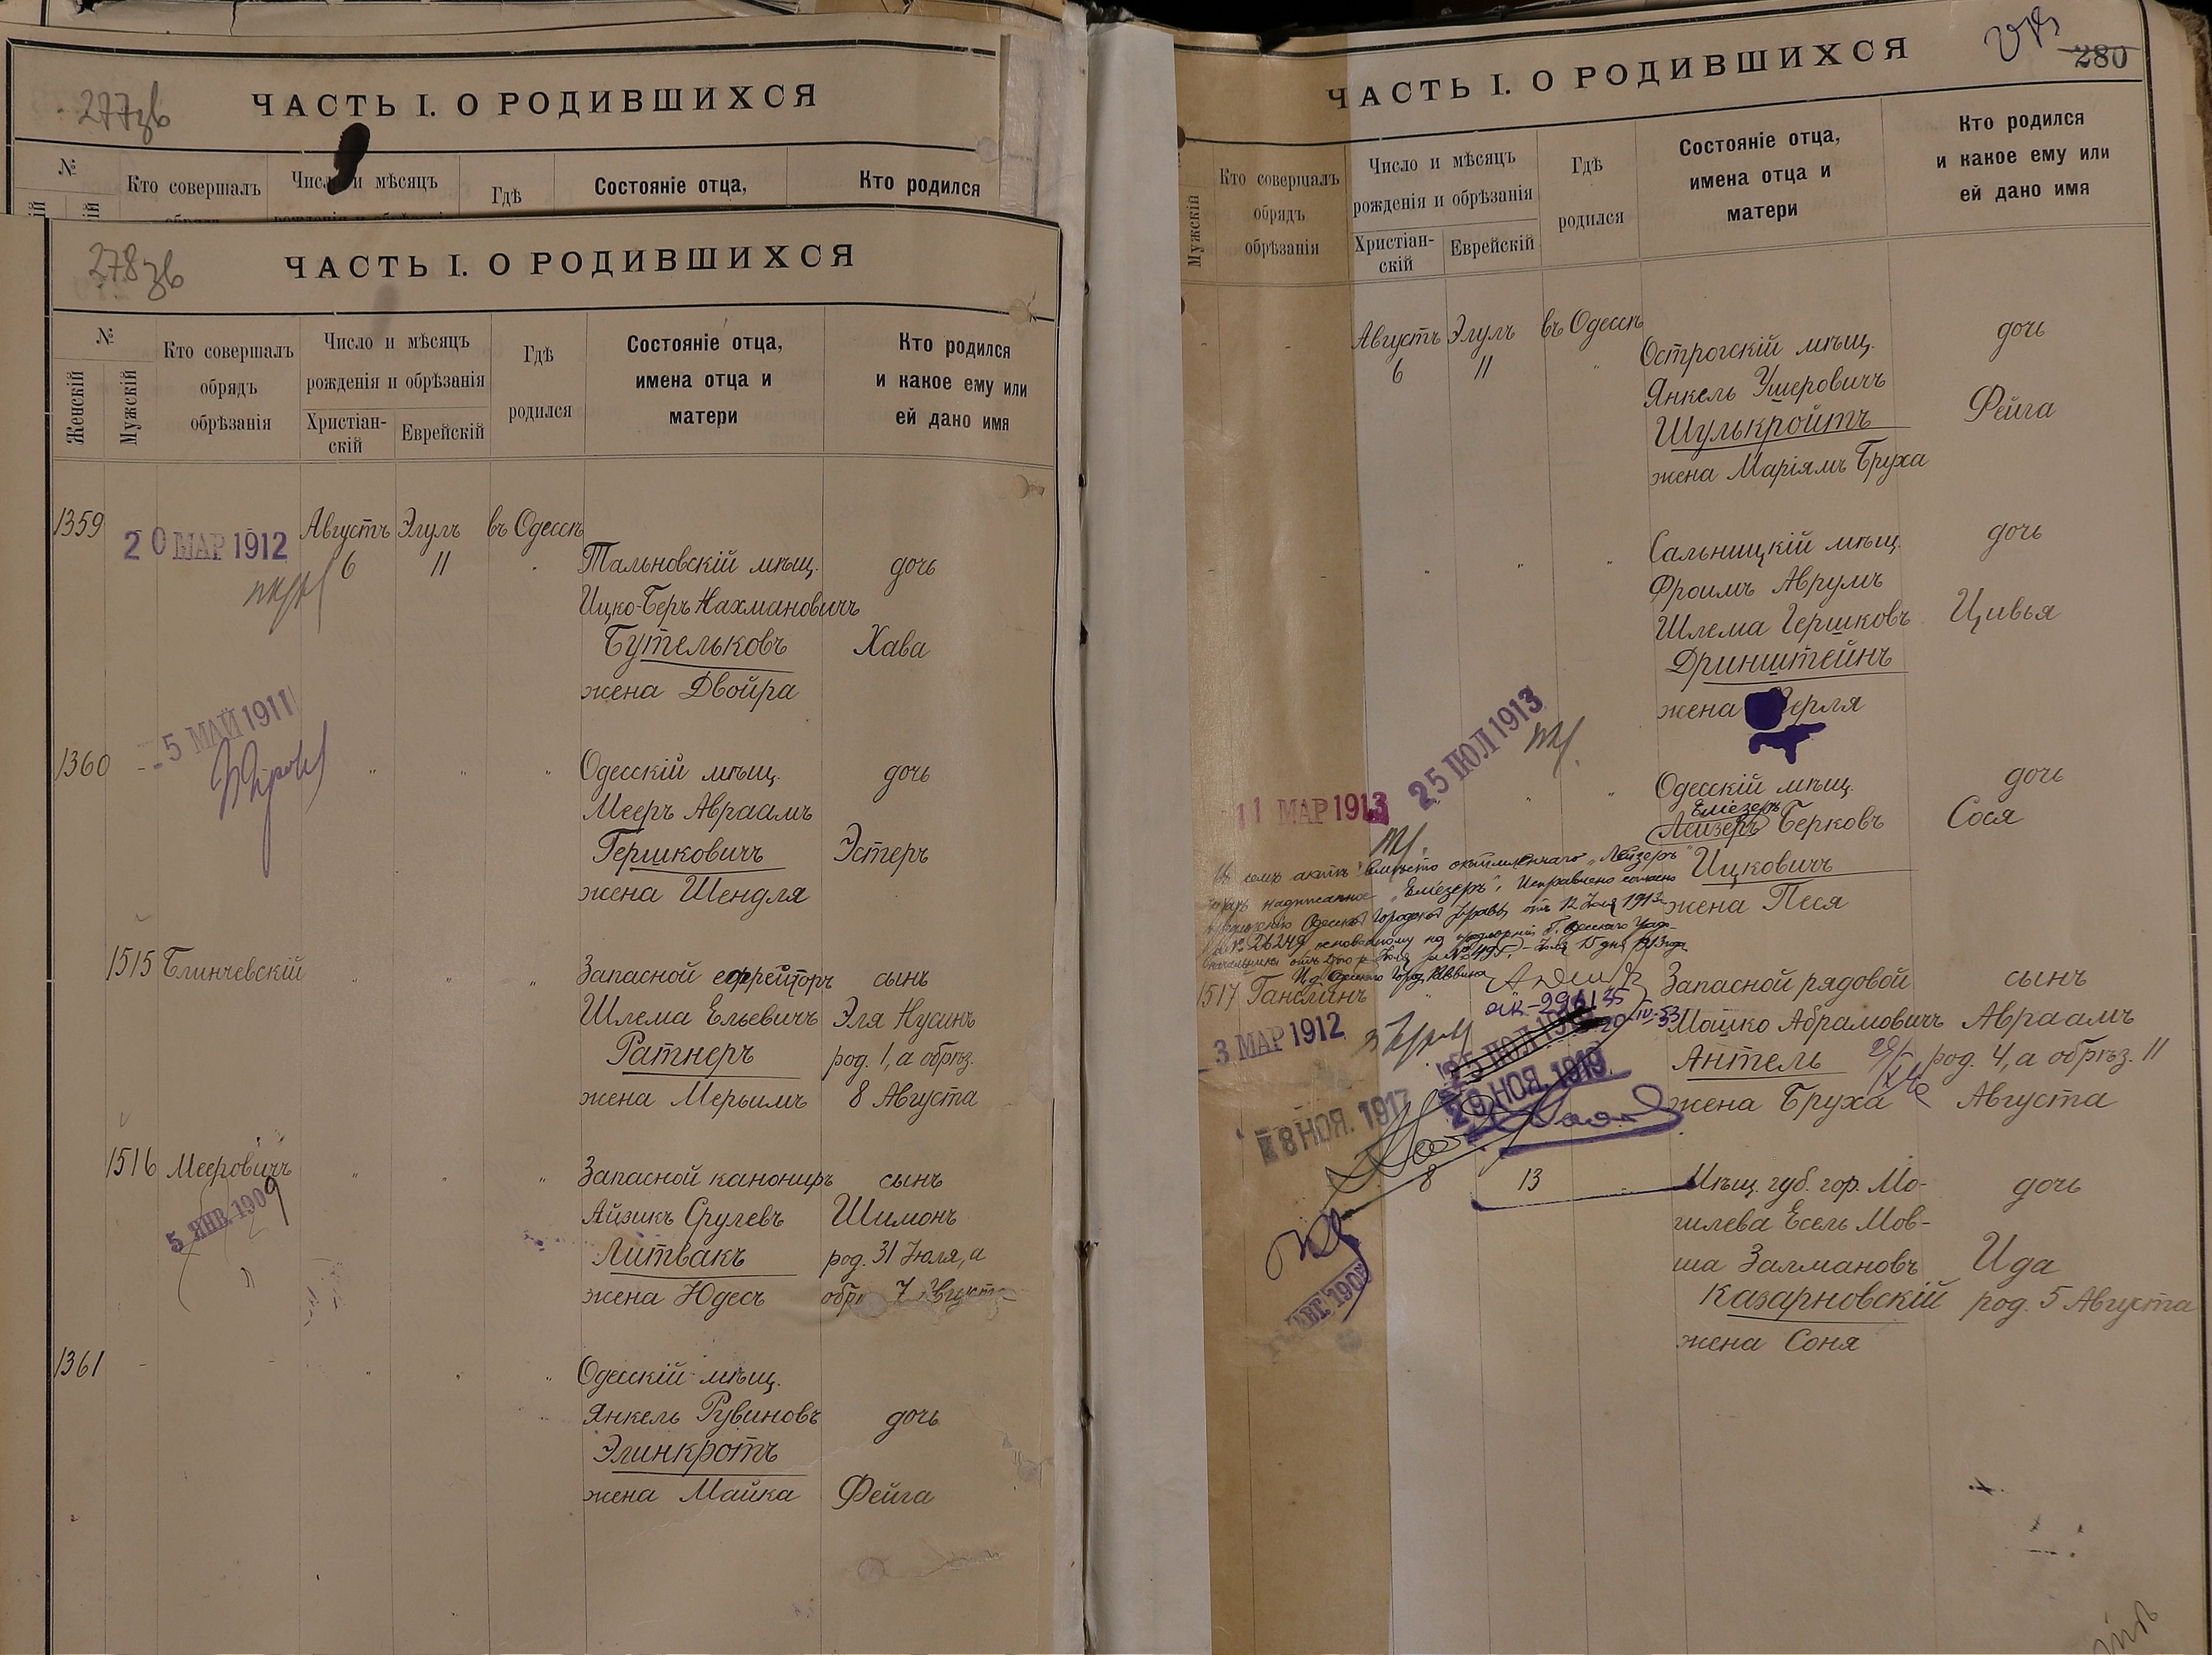 277зв
ЧАСТЬ I. О РОДИВШИХСЯ
№
Кто совершалъ
Число и мѣсяцъ
Гдѣ
Состояніе отца,
Кто родился
278зв
ЧАСТЬ I. О РОДИВШИХСЯ
№
Женскій
Мужскій
Кто совершалъ
обрядъ
обрѣзанія
Число и мѣсяцъ
рожденія и обрѣзанія
Христіан-
скій
Еврейскій
Гдѣ
родился
Состояніе отца,
имена отца и
матери
Кто родился
и какое ему или
ей дано имя
1359
20 МАР 1912
Августъ Элулъ въ Одессѣ
6 11
Тальновскій мѣщ. дочь
Ицко-Беръ Нахмановичъ
Бутельковъ Хава
жена Двойра
1360
5 МАЙ 1911
Одесскій мѣщ. дочь
Мееръ Авраамъ
Гершковичъ Эстеръ
жена Шендля
1515 Блинчевскій
Запасной ефрейторъ сынъ
Шлема Ельевичъ Эля Нусинъ
Ратнеръ род. 1, а обрѣз.
жена Мерьимъ 8 Августа
1516 Мееровичъ
5 ЯНВ 1909
Запасной канониръ сынъ
Айзикъ Срулевъ Шимонъ
Литвакъ род. 31 Іюля, а
жена Юдесъ 7 Августа
1361
Одесскій мѣщ.
Янкель Рувиновъ дочь
Элинкротъ
жена Майка Фейга
280
ЧАСТЬ I. О РОДИВШИХСЯ
Мужскій
Кто совершалъ
обрядъ
обрѣзанія
Число и мѣсяцъ
рожденія и обрѣзанія
Христіан-
скій
Еврейскій
Гдѣ
родился
Состояніе отца,
имена отца и
матери
Кто родился
и какое ему или
ей дано имя
Августъ Элулъ въ Одессѣ
6 11
Острогскій мѣщ. дочь
Янкель Ушеровичъ
Шулькройтъ Фейга
жена Маріямъ Бруха
Сальницкій мѣщ. дочь
Фроимъ Аврумъ
Шлема Гершковъ Цивья
Дринштейнъ
жена Перля
25 ІЮЛ 1913
11 МАР 1913
Одесскій мѣщ. дочь
Еліезеръ
Лейзеръ Берковъ Сося
Ицковичъ
жена Песя
семъ актѣ вмѣсто "Лейзеръ"
надписанное "Еліезеръ". Исправлено согласно
Одесской Городской Управы отъ 12 Іюля 1913
№ 26249, основанному на
Іюля 15 дня 1913 года
Город. Раввина
1517 Ганслинъ
3 МАР 1912
29 НОЯ. 1919
8 НОЯ. 1917
Запасной рядовой сынъ
Мошко Абрамовичъ Авраамъ
Антель род. 4, а обрѣз. 11
жена Бруха Августа
8 13
Мѣщ. губ. гор. Мо- дочь
гилева Есель Мов-
ша Залмановъ Ида
Казарновскій род. 5 Августа
жена Соня